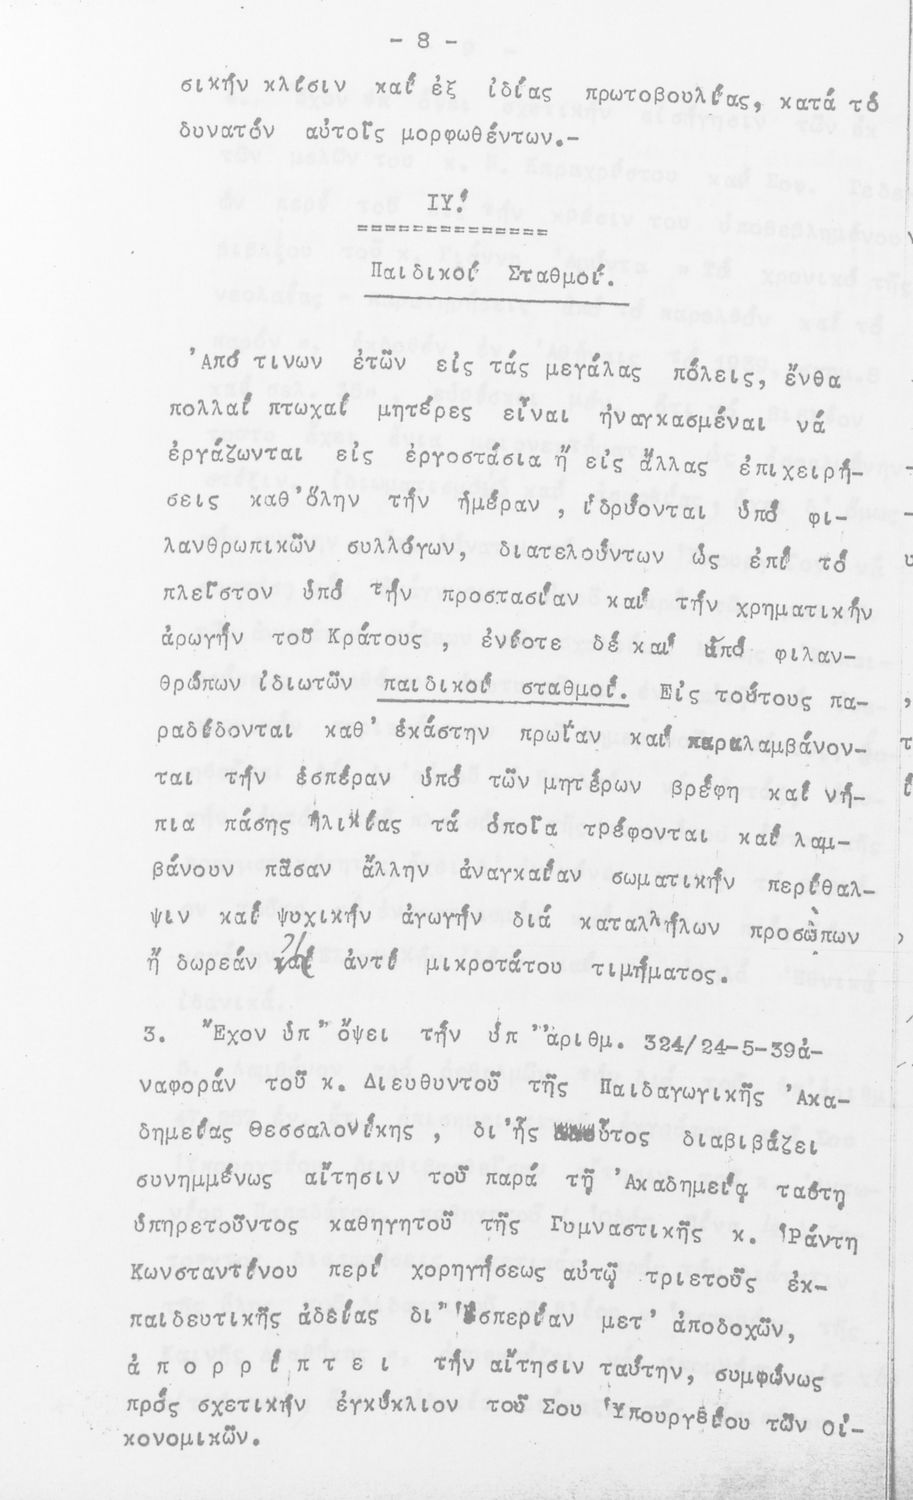 - 8 -
σικήν κλίσιν καί ἐξ ἰδίας πρωτοβουλίας, κατά τό
δυνατόν αὐτοῖς μορφωθέντων.-
ΙΥ!
==============
Παιδικοί Σταθμοί.
Ἀπό τινων ἐτῶν εἰς τάς μεγάλας πόλεις, ἔνθα
πολλαί πτωχαί μητέρες εἶναι ἠναγκασμέναι νά
ἐργάζωνται εἰς ἐργοστάσια ἤ εἰς ἄλλας ἐπιχειρή-
σεις καθ'ὅλην τήν ἡμέραν , ἱδρύονται ὑπό φι-
λανθρωπικῶν συλλόγων, διατελούντων ὡς ἐπί τό
πλεῖστον ὑπό τήν προστασίαν καί τήν χρηματικήν
ἀρωγήν τοῦ Κράτους , ἐνίοτε δέ καί ὑπό φιλαν-
θρώπων ἰδιωτῶν παιδικοί σταθμοί. Εἰς τούτους πα-
ραδίδονται καθ' ἑκάστην πρωΐαν καί παραλαμβάνον-
ται τήν ἑσπέραν ὑπό τῶν μητέρων βρέφη καί νή-
πια πάσης ἡλικίας τά ὁποῖα τρέφονται καί λαμ-
βάνουν πᾶσαν ἄλλην ἀναγκαίαν σωματικήν περίθαλ-
ψιν καί ψυχικήν ἀγωγήν διά καταλλήλων προσώπων
ἤ δωρεάν ἤ ἀντί μικροτάτου τιμήματος.
3. Ἔχον ὑπ'' ὄψει τήν ὑπ ''ἀριθμ. 324/24-5-39ἀ-
ναφοράν τοῦ κ. Διευθυντοῦ τῆς Παιδαγωγικῆς Ἀκα-
δημείας Θεσσαλονίκης , δι'ἧς οὗτος διαβιβάζει
συνημμένως αἴτησιν τοῦ παρά τῇ Ἀκαδημείᾳ ταύτῃ
ὑπηρετοῦντος καθηγητοῦ τῆς Γυμναστικῆς κ. Ῥάντη
Κωνσταντίνου περί χορηγήσεως αὐτῷ τριετοῦς ἐκ-
παιδευτικῆς ἀδείας δι'' Ἑσπερίαν μετ' ἀποδοχῶν,
ἀ π ο ρ ρ ί π τ ε ι τήν αἴτησιν ταύτην, συμφώνως
πρός σχετικήν ἐγκύκλιον τοῦ Σου Ὑπουργείου τῶν Οἰ-
κονομικῶν.